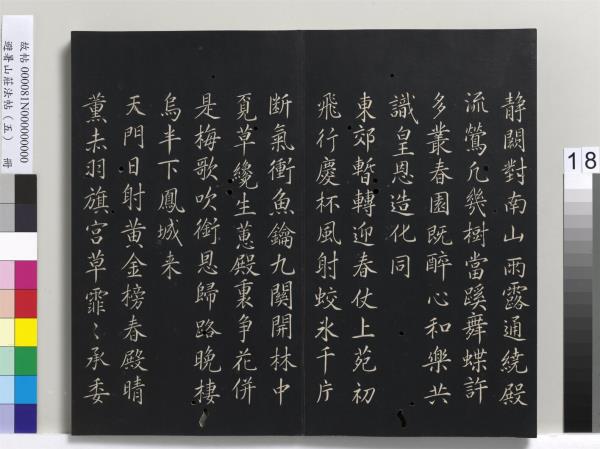 静闕對南山雨露通繞殿
流鶯凢幾樹當蹊舞蝶許
多叢春園既醉心和樂共
識皇恩造化同
東郊暫轉迎春仗上苑初
飛行慶杯風射蛟氷千片
断氣衝魚鑰九關開林中
覓草纔生蕙殿裏争花併
是梅歌吹銜恩歸路晚棲
烏半下鳳城来
天門日射黄金榜春殿晴
薰赤羽旗宮草霏〻承委
故帖 000081N000000000
避暑山莊法帖（五） 冊
18